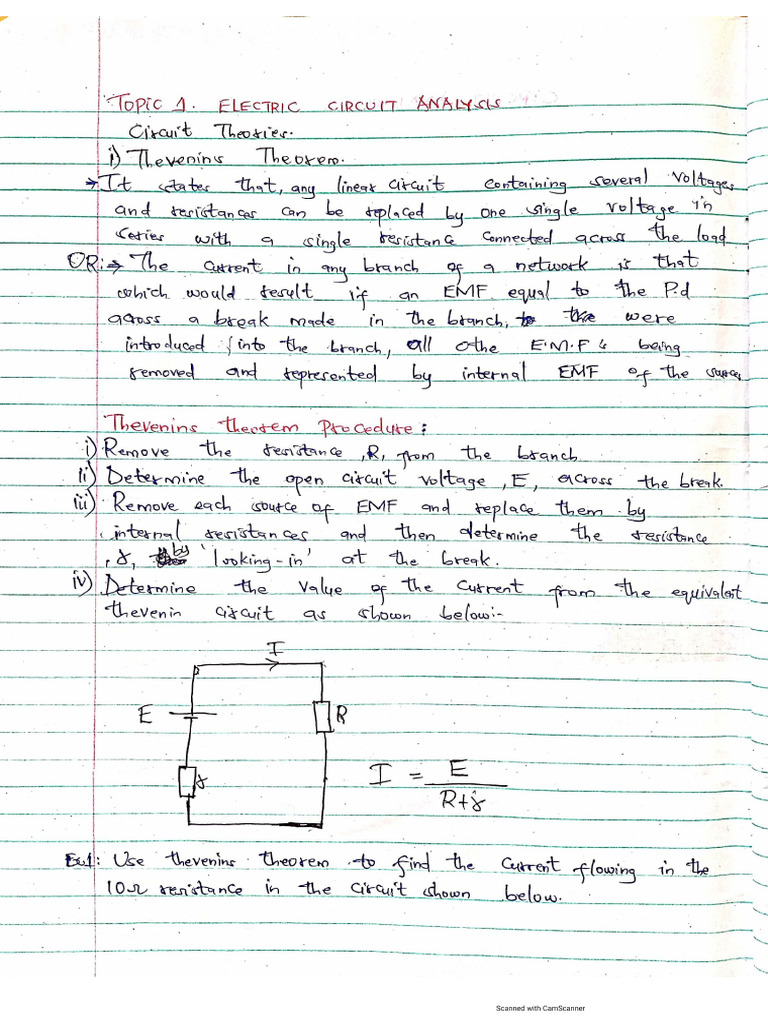 TOPIC 1. ELECTRIC CIRCUIT ANALYSIS
Circuit Theories.
i) Thevenins Theorem.
→ It states that, any linear circuit containing several voltages
and resistances can be replaced by one single voltage in
series with a single resistance connected across the load
OR:→ The current in any branch of a network is that
which would result if an EMF equal to the P.d
across a break made in the branch, were
introduced into the branch, all othe E.M.Fs being
removed and represented by internal EMF of the
Thevenins theorem Procedure:
i) Remove the resistance, R, from the branch
ii) Determine the open circuit voltage, E, across the break.
iii) Remove each source of EMF and replace them by
internal resistances and then determine the resistance
, r, by 'looking-in' at the break.
iv) Determine the value of the current from the equivalent
thevenin circuit as shown below:-
I
E
R
r
I = E
R+r
Ex1: Use thevenins theorem to find the current flowing in the
10Ω resistance in the circuit shown below.
Scanned with CamScanner